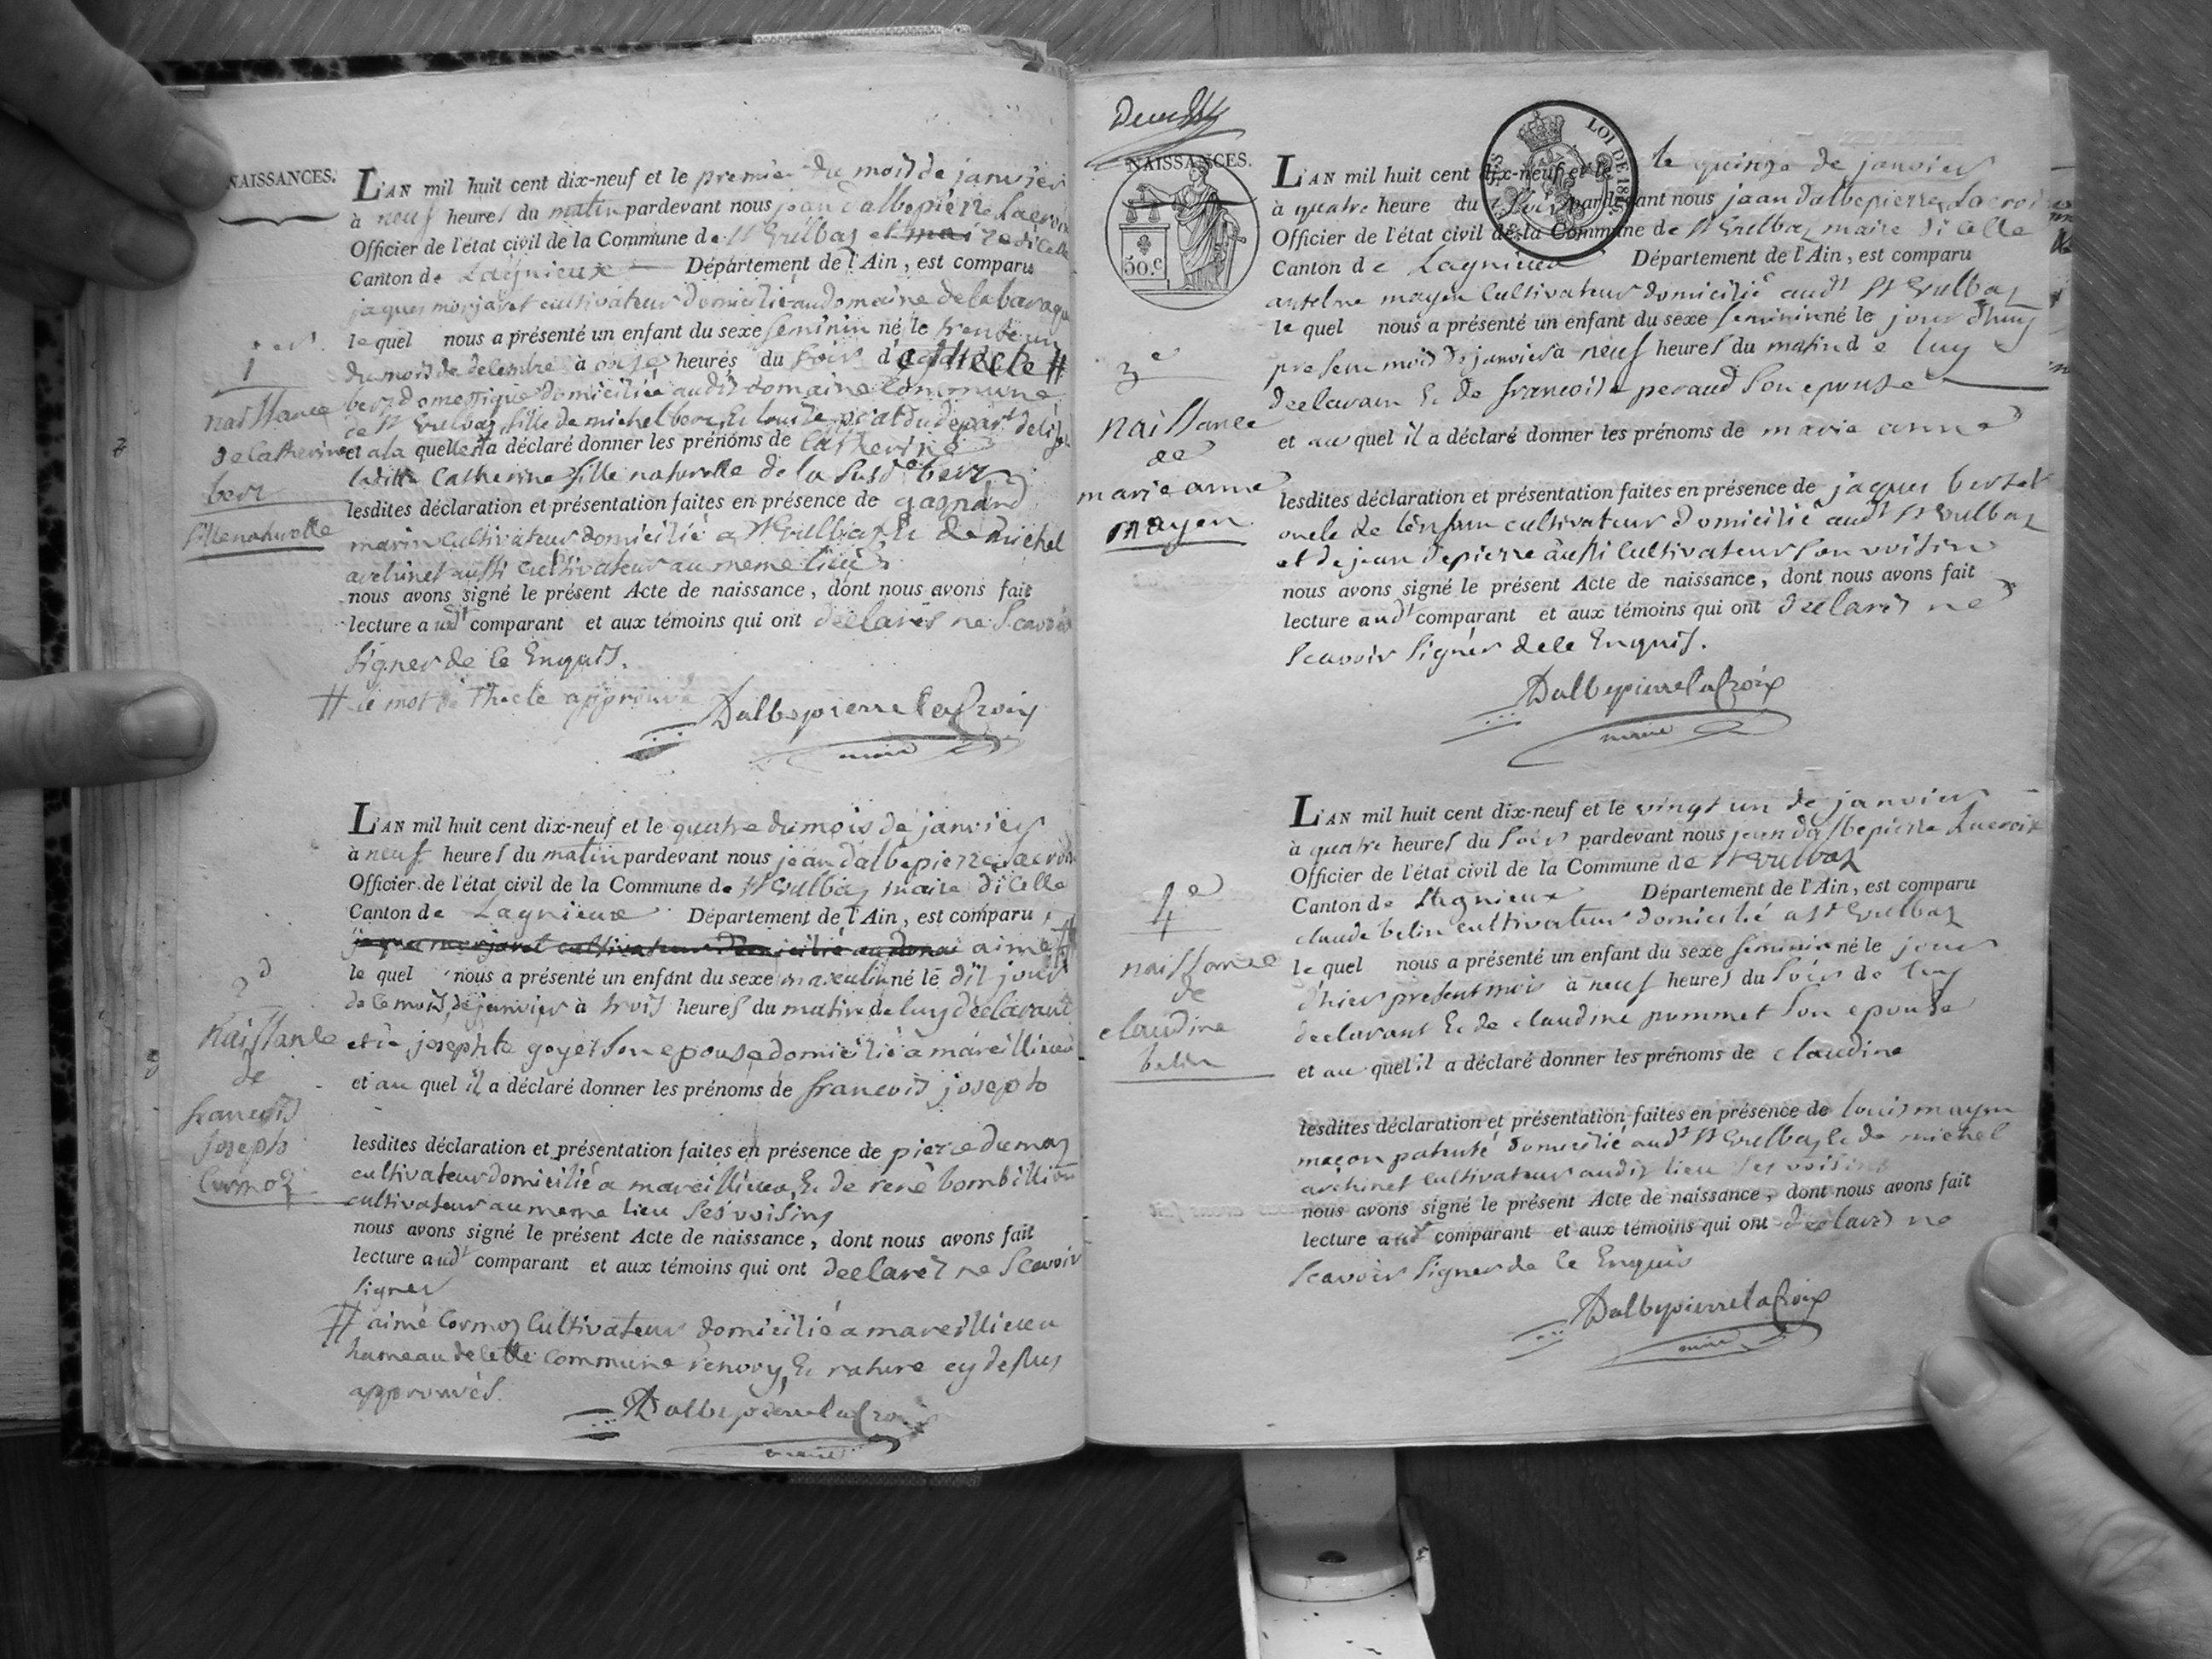 NAISSANCES.
L'AN mil huit cent dix-neuf et le premier du mois de janvier
à neuf heures du matin pardevant nous jean dalbepierre Lacroix
Officier de l'état civil de la Commune de St Vulbaz et maire dicelle
Canton de Lagnieux Département de l'Ain, est comparu
jaques morjaret cultivateur domicilié au domaine de la
le quel nous a présenté un enfant du sexe feminin né le trente un
du mois de decembre à onze heures du soir de thecle #
berr domestique domiciliée audit domaine commune
de St Vulbaz fille de michel berr & louise
et a la quelle il a déclaré donner les prénoms de Catherine
laditte Catherine fille naturelle de la susde berr
lesdites déclaration et présentation faites en présence de gaspard
marin cultivateur domicilié a St Vulbaz & de michel
archinet aussi cultivateur au meme lieu
nous avons signé le présent Acte de naissance, dont nous avons fait
lecture audt comparant et aux témoins qui ont declarés ne Scavoir
signer de ce Enquis.
# le mot de Thecle approuvé
Dalbepierre lacroix
maire
1er
naissance
de Catherine
berr
fille naturelle
L'AN mil huit cent dix-neuf et le quatre du mois de janvier
à neuf heures du matin pardevant nous jean dalbepierre Lacroix
Officier de l'état civil de la Commune de St Vulbaz maire dicelle
Canton de Lagnieux Département de l'Ain, est comparu
jaques morjaret cultivateur domicilié au domai aimé #
le quel nous a présenté un enfant du sexe masculin né le dit jour
de ce mois de janvier à trois heures du matin de luy déclarant
et de josephte goyet son epouse domicilié à mareillieux
et au quel il a déclaré donner les prénoms de francois joseph
lesdites déclaration et présentation faites en présence de pierre dumaz
cultivateur domicilié a mareillieux & de rené bombillion
cultivateur au meme lieu ses voisins
nous avons signé le présent Acte de naissance, dont nous avons fait
lecture audt comparant et aux témoins qui ont declarés ne Scavoir
signer
# aimé Cormoz Cultivateur domicilié a mareillieux
hameau de cette Commune renvoy & rature cy dessus
approuvés.
Dalbepierre lacroix
maire
2d
Naissance
de
francois
joseph
Cormoz
NAISSANCES.
50.C
LOI DE 18
L'AN mil huit cent dix-neuf et le le quinze de janvier
à quatre heure du soir pardevant nous jean dalbepierre Lacroix
Officier de l'état civil de la Commune de St Vulbaz maire dicelle
Canton de Lagnieux Département de l'Ain, est comparu
antelme mayen Cultivateur domicilié audt St Vulbaz
le quel nous a présenté un enfant du sexe feminin né le jour dhuy
present mois de janvier à neuf heures du matin de luy
declarant & de francoise peraud son epouse
et au quel il a déclaré donner les prénoms de marie anne
lesdites déclaration et présentation faites en présence de jaques berset
oncle de lenfant cultivateur domicilié audt St Vulbaz
et de jean depierre aussi Cultivateur son voisin
nous avons signé le présent Acte de naissance, dont nous avons fait
lecture audt comparant et aux témoins qui ont declarés ne
Scavoir signer de ce Enquis.
Dalbepierre lacroix
maire
3e
naissance
de
marie anne
mayen
L'AN mil huit cent dix-neuf et le vingt un de janvier
à quatre heures du soir pardevant nous jean dalbepierre Lacroix
Officier de l'état civil de la Commune de St Vulbaz
Canton de Lagnieux Département de l'Ain, est comparu
claude belin cultivateur domicilié a St Vulbaz
le quel nous a présenté un enfant du sexe feminin né le jour
d'hier present mois à neuf heures du soir de luy
declarant & de claudine pommet son epouse
et au quel il a déclaré donner les prénoms de claudine
lesdites déclaration et présentation faites en présence de louis mayen
maçon patenté domicilié audt St Vulbaz & de michel
archinet Cultivateur audit lieu ses voisins
nous avons signé le présent Acte de naissance, dont nous avons fait
lecture audt comparant et aux témoins qui ont declarés ne
Scavoir signer de ce Enquis
Dalbepierre lacroix
maire
4e
naissance
de
claudine
belin